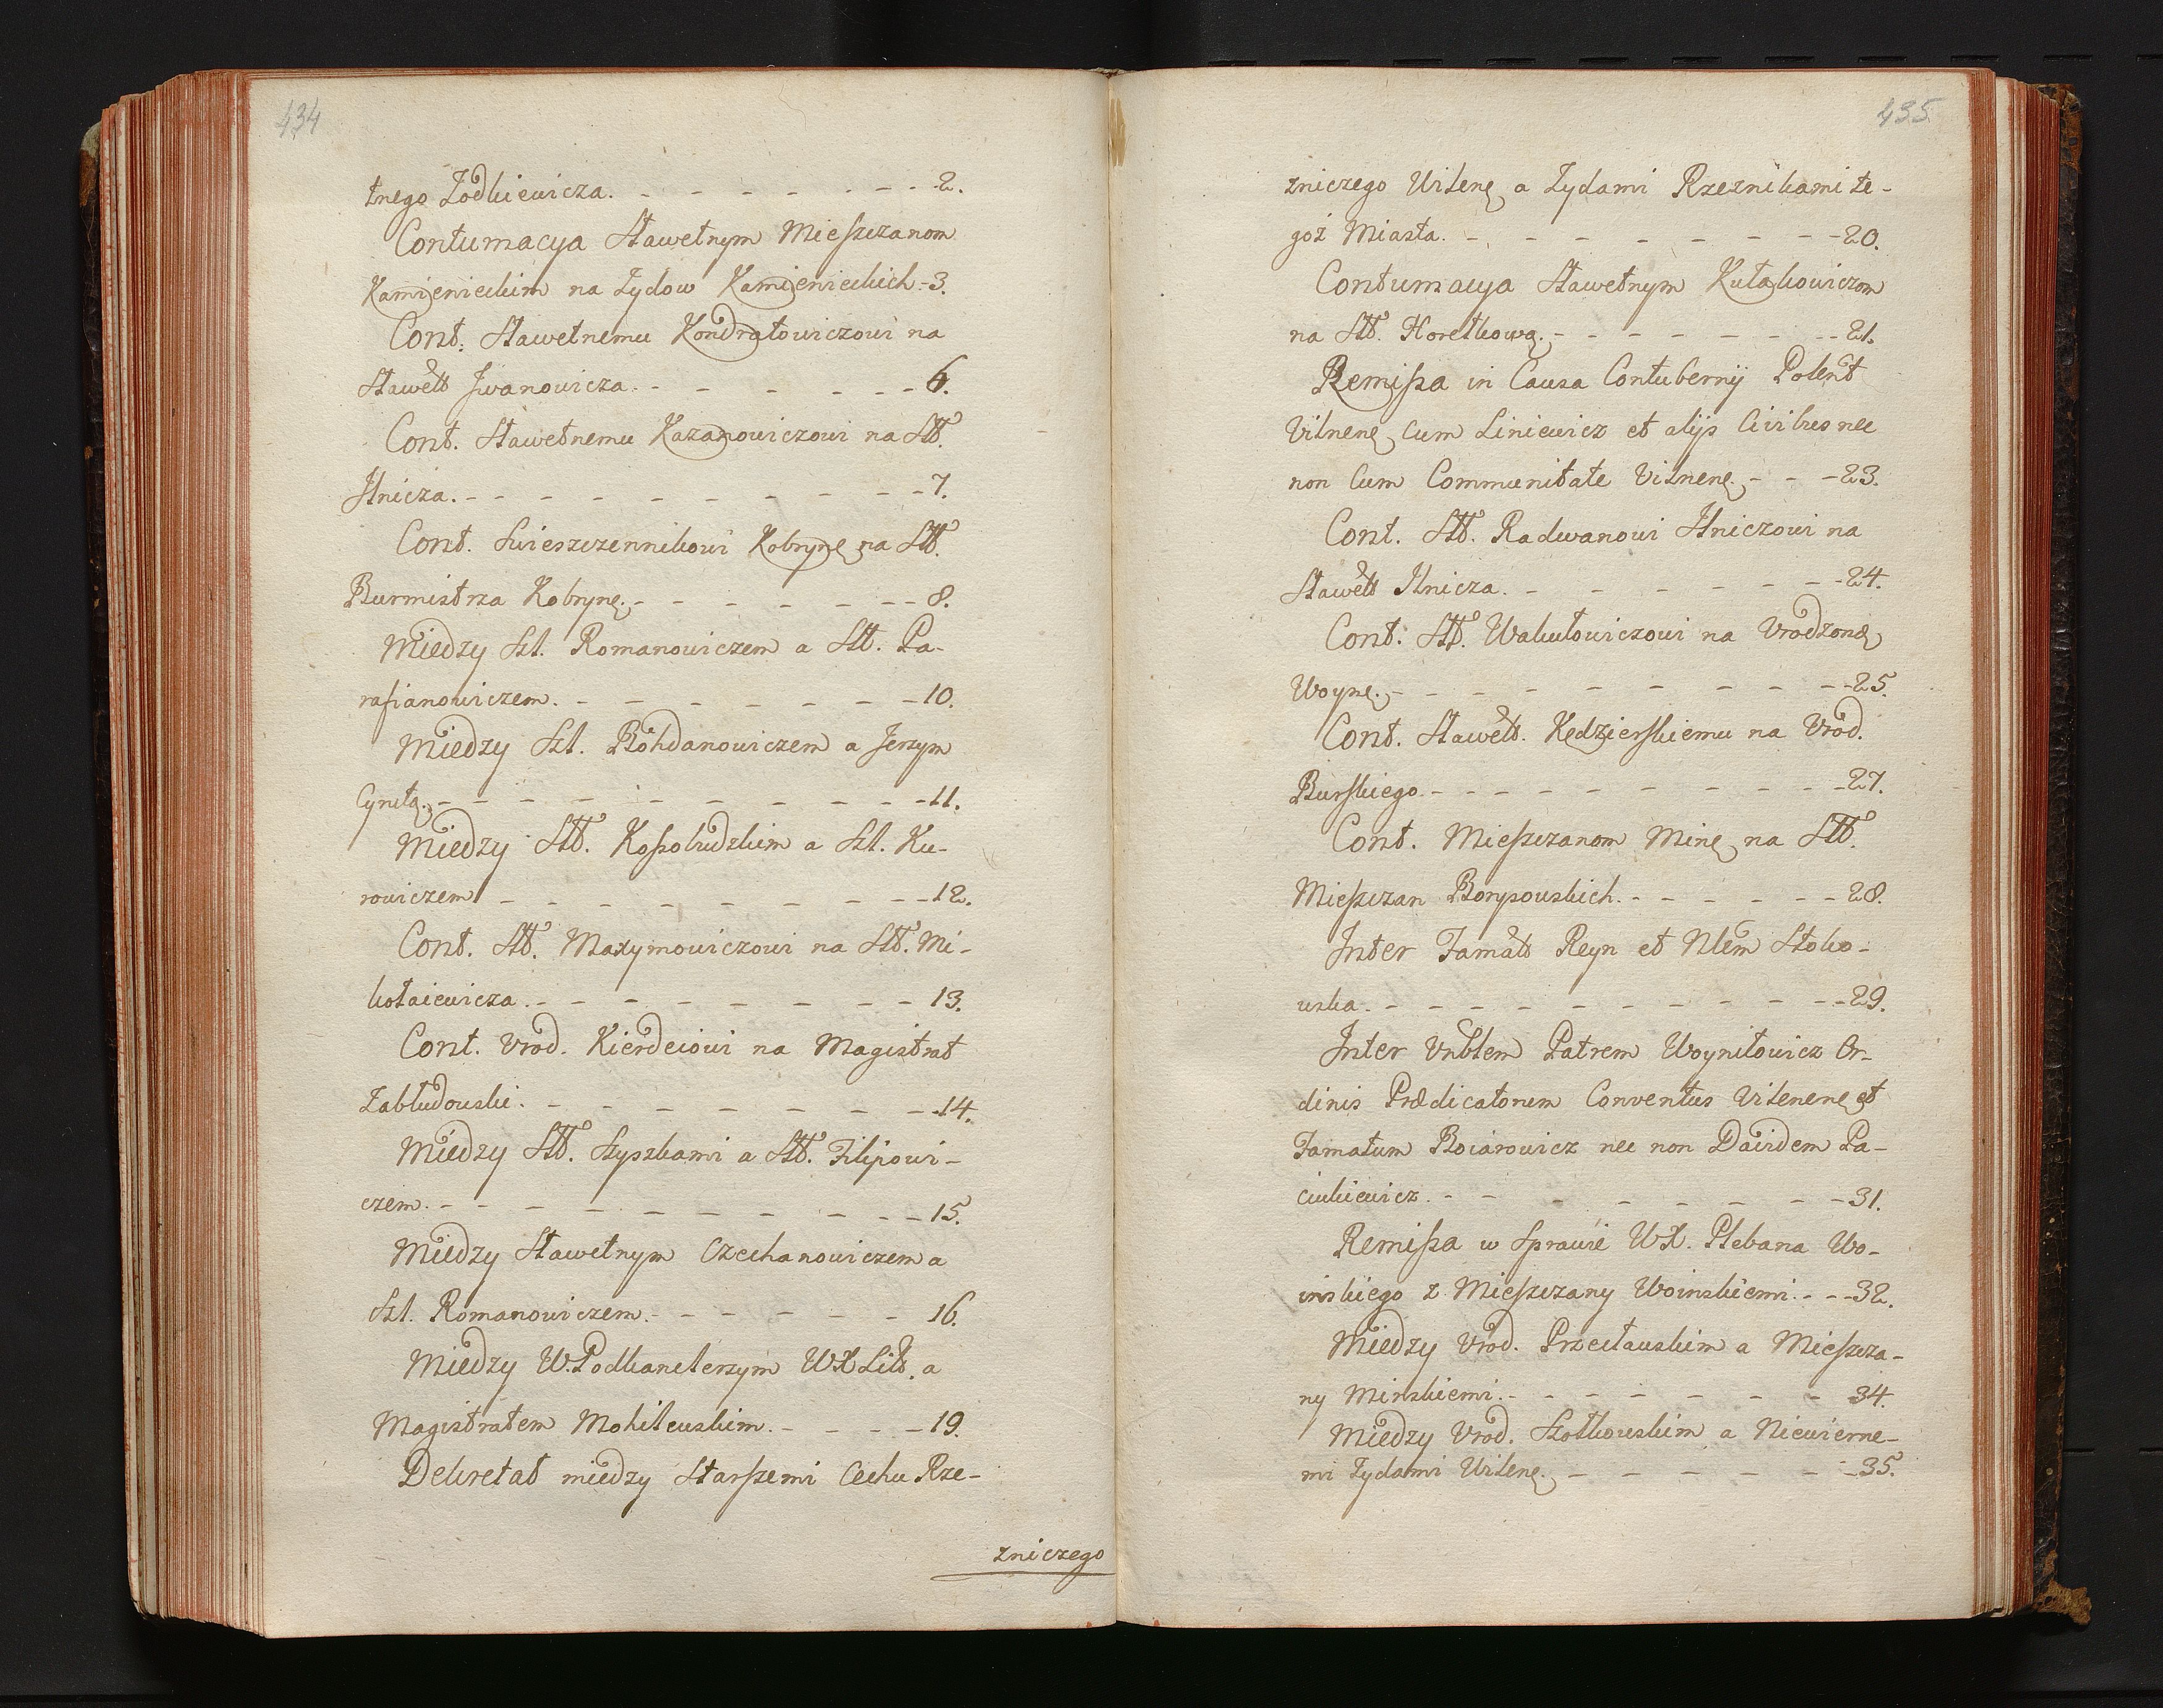 434
tnego Zodkiewicza. - - - - - - - - 2.
Contumacya Sławetnym Mieszczanom
Kamienieckim na Żydow Kamienieckich - 3.
Cont. Sławetnemu Kondratowiczowi na
Sławett Jwanowicza. - - - - - - - 6.
Cont. Sławetnemu Kazanowiczowi na Sltt.
Ilnicza. - - - - - - - - - - 7.
Cont. Swieszczennikowi Kobryn. na Sltt.
Burmistrza Kobryn. - - - - - - - 8.
Miedzy Szl. Romanowiczem a Slt. Pa-
rafianowiczem. - - - - - - - - 10.
Miedzy Szl. Bohdanowiczem a Jerzym
Cyrulą. - - - - - - - - - - 11.
Miedzy Sltt. Kossobudzkim a Szl. Ku-
rowiczem - - - - - - - - - 12.
Cont. Sltt. Maxymowiczowi na Sltt. Mi-
kołaiewicza. - - - - - - - - 13.
Cont. Urod. Kierdeiowi na Magistrat
Zabłudowski. - - - - - - - - 14.
Miedzy Sltt. Szyszkami a Sltt. Filipowi-
czem. - - - - - - - - - - 15.
Miedzy Sławetnym Czechanowiczem a
Szl. Romanowiczem. - - - - - - 16.
Miedzy W. Podkanclerzym WX Litt. a
Magistratem Mohilewskim. - - - - 19.
Dekretat miedzy Starszemi Cechu Rze-
zniczego
435
zniczego Wilen. a Żydami Rzeznikami te-
goż Miasta. - - - - - - - - 20.
Contumacya Sławetnym Kułakowiczom
na Sltt. Horełkową. - - - - - - - 21.
Remissa in Causa Contubernij Polent
Vilnen. Cum Liniewicz et alijs Civibus nec
non Cum Communitate Vilnen. - - - 23.
Cont. Sltt. Radwanowi Ilniczowi na
Sławett Ilnicza. - - - - - - - 24.
Cont. Sltt. Wakułowiczowi na Urodzoną
Woynę. - - - - - - - - - 25.
Cont. Sławett. Kędzierskiemu na Urod.
Burskiego. - - - - - - - - - 27.
Cont. Mieszczanom Min. na Sltt.
Mieszczan Borysowskich. - - - - - - 28.
Inter Famatt Reyn et Nlem Stoko-
wska. - - - - - - - - - - 29.
Inter Vnblem Patrem Woyniłowicz Or-
dinis Prædicatorum Conventus Vilnenen. et
Famatum Boiarowicz nec non Davidem Pa-
ciukiewicz. - - - - - - - - 31.
Remissa w Sprawie WX. Plebana Wo-
inskiego z Mieszczany Woinskiemi. - - - 32.
Miedzy Urod. Przecławskim a Mieszcza-
ny Minskiemi. - - - - - - - 34.
Miedzy Urod. Szołkowskim a Niewierne-
mi Żydami Wilen. - - - - - - 35.